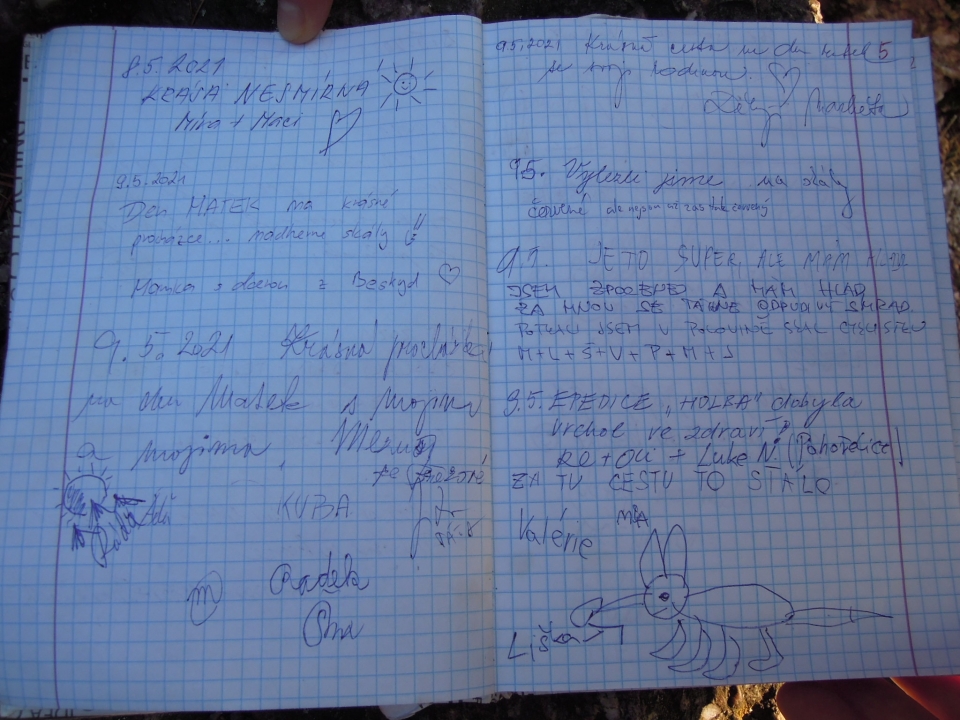 8.5.2021
KRÁSA NESMÍRNÁ
Míra + Maci
9.5.2021
Den MATEK na krásné
procházce... nádherné skály
Mamka s dcerou z Beskyd
9.5.2021 Krásná procházka
na den Matek s mojím
a mojima
KUBA
Radek
9.5.2021 Krásná cesta na den matek
se svojí rodinou.
Markéta
9.5. Vylezli jsme na skály
červené ale nejsou
9.5. JE TO SUPER, ALE MÁM HLAD
JSEM ZPOCENEJ A MÁM HLAD
ZA MNOU SE TÁHNE ODPUDIVÝ SMRAD.
POTKAL JSEM V POLOVINĚ
M+L+Š+V+P+M+J
9.5. EPEDICE "HOLBA" dobyla
vrchol ve zdraví
Re+Oli + Luke N. (Pohořelice)
ZA TU CESTU TO STÁLO
Valérie
MÍA
Liška